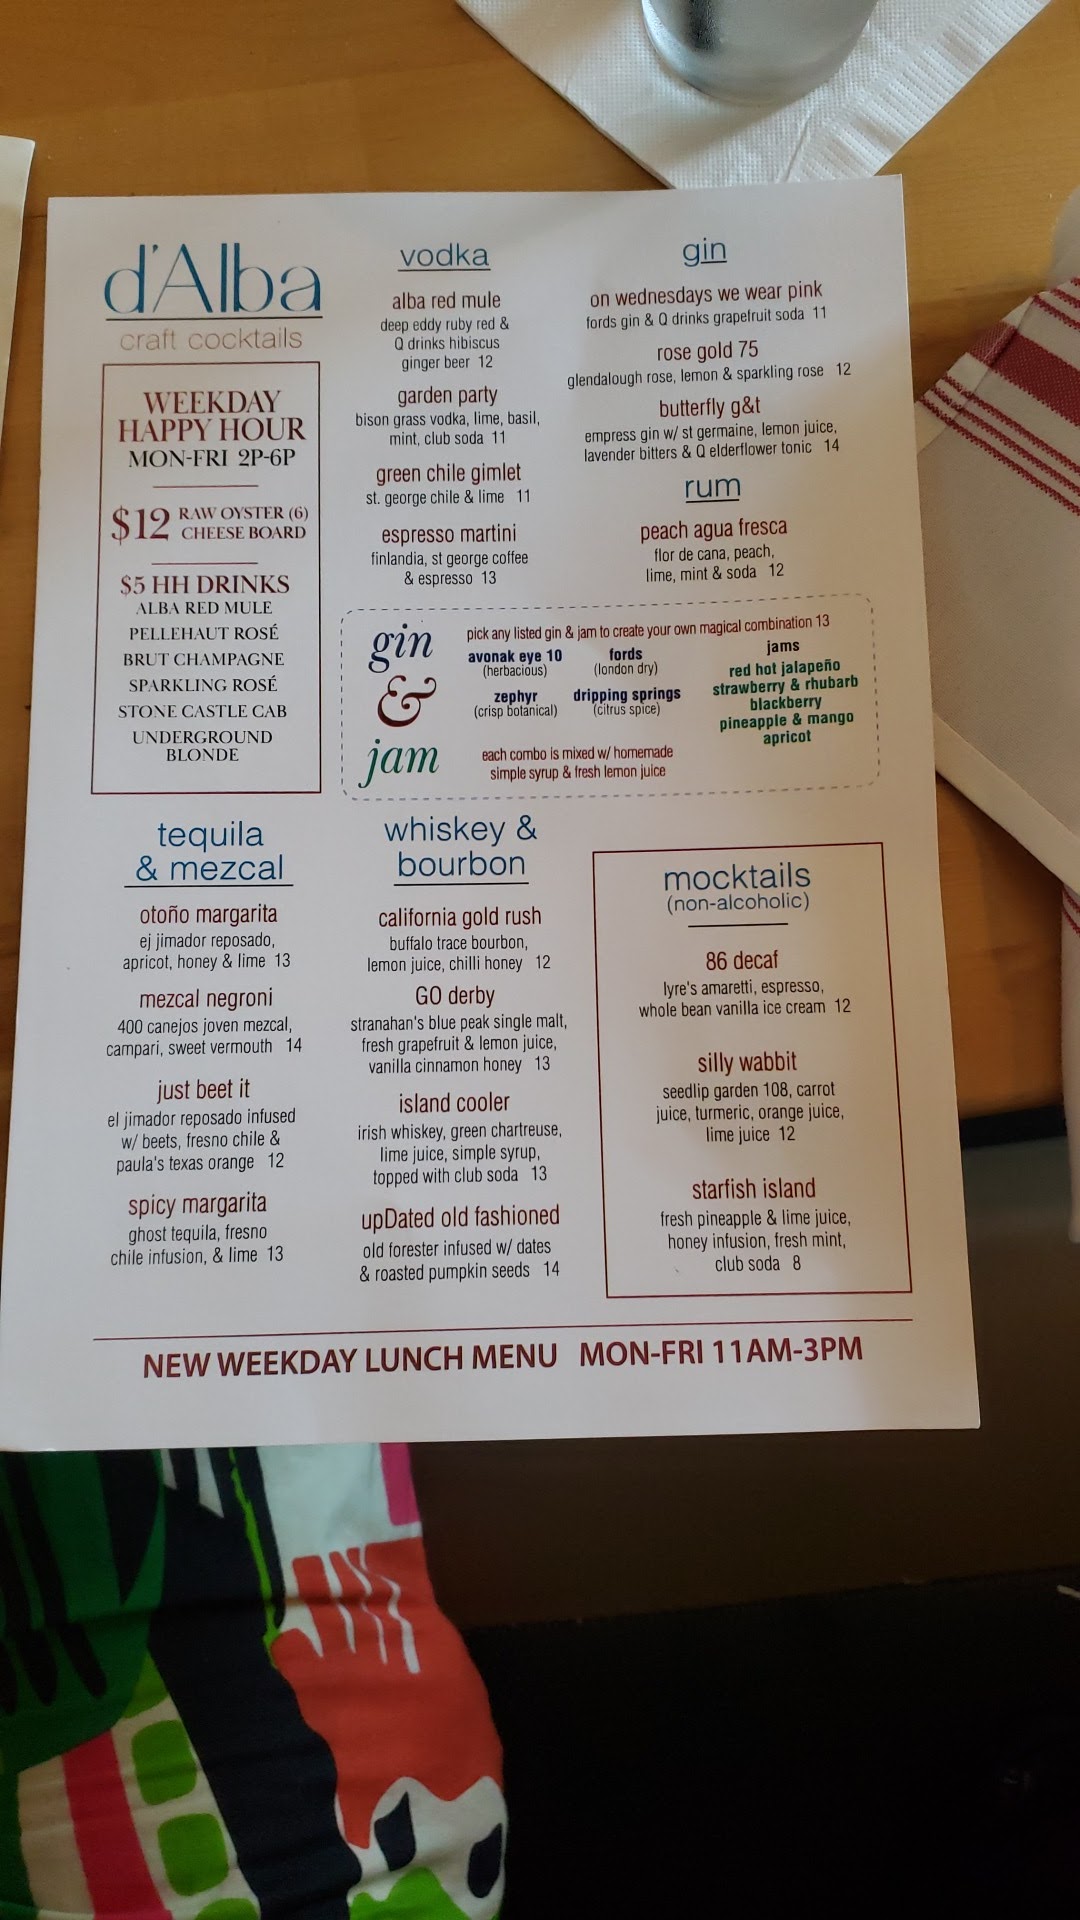 d'Alba
craft cocktails
WEEKDAY
HAPPY HOUR
MON-FRI 2P-6P
$12 RAW OYSTER (6)
CHEESE BOARD
$5 HH DRINKS
ALBA RED MULE
PELLEHAUT ROSÉ
BRUT CHAMPAGNE
SPARKLING ROSÉ
STONE CASTLE CAB
UNDERGROUND
BLONDE
vodka
alba red mule
deep eddy ruby red &
Q drinks hibiscus
ginger beer 12
garden party
bison grass vodka, lime, basil,
mint, club soda 11
green chile gimlet
st. george chile & lime 11
espresso martini
finlandia, st george coffee
& espresso 13
gin
on wednesdays we wear pink
fords gin & Q drinks grapefruit soda 11
rose gold 75
glendalough rose, lemon & sparkling rose 12
butterfly g&t
empress gin w/ st germaine, lemon juice,
lavender bitters & Q elderflower tonic 14
rum
peach agua fresca
flor de cana, peach,
lime, mint & soda 12
gin
&
jam
pick any listed gin & jam to create your own magical combination 13
avonak eye 10
(herbacious)
fords
(london dry)
zephyr
(crisp botanical)
dripping springs
(citrus spice)
jams
red hot jalapeño
strawberry & rhubarb
blackberry
pineapple & mango
apricot
each combo is mixed w/ homemade
simple syrup & fresh lemon juice
tequila
& mezcal
otoño margarita
ej jimador reposado,
apricot, honey & lime 13
mezcal negroni
400 canejos joven mezcal,
campari, sweet vermouth 14
just beet it
el jimador reposado infused
w/ beets, fresno chile &
paula's texas orange 12
spicy margarita
ghost tequila, fresno
chile infusion, & lime 13
whiskey &
bourbon
california gold rush
buffalo trace bourbon,
lemon juice, chilli honey 12
GO derby
stranahan's blue peak single malt,
fresh grapefruit & lemon juice,
vanilla cinnamon honey 13
island cooler
irish whiskey, green chartreuse,
lime juice, simple syrup,
topped with club soda 13
upDated old fashioned
old forester infused w/ dates
& roasted pumpkin seeds 14
mocktails
(non-alcoholic)
86 decaf
lyre's amaretti, espresso,
whole bean vanilla ice cream 12
silly wabbit
seedlip garden 108, carrot
juice, turmeric, orange juice,
lime juice 12
starfish island
fresh pineapple & lime juice,
honey infusion, fresh mint,
club soda 8
NEW WEEKDAY LUNCH MENU MON-FRI 11AM-3PM